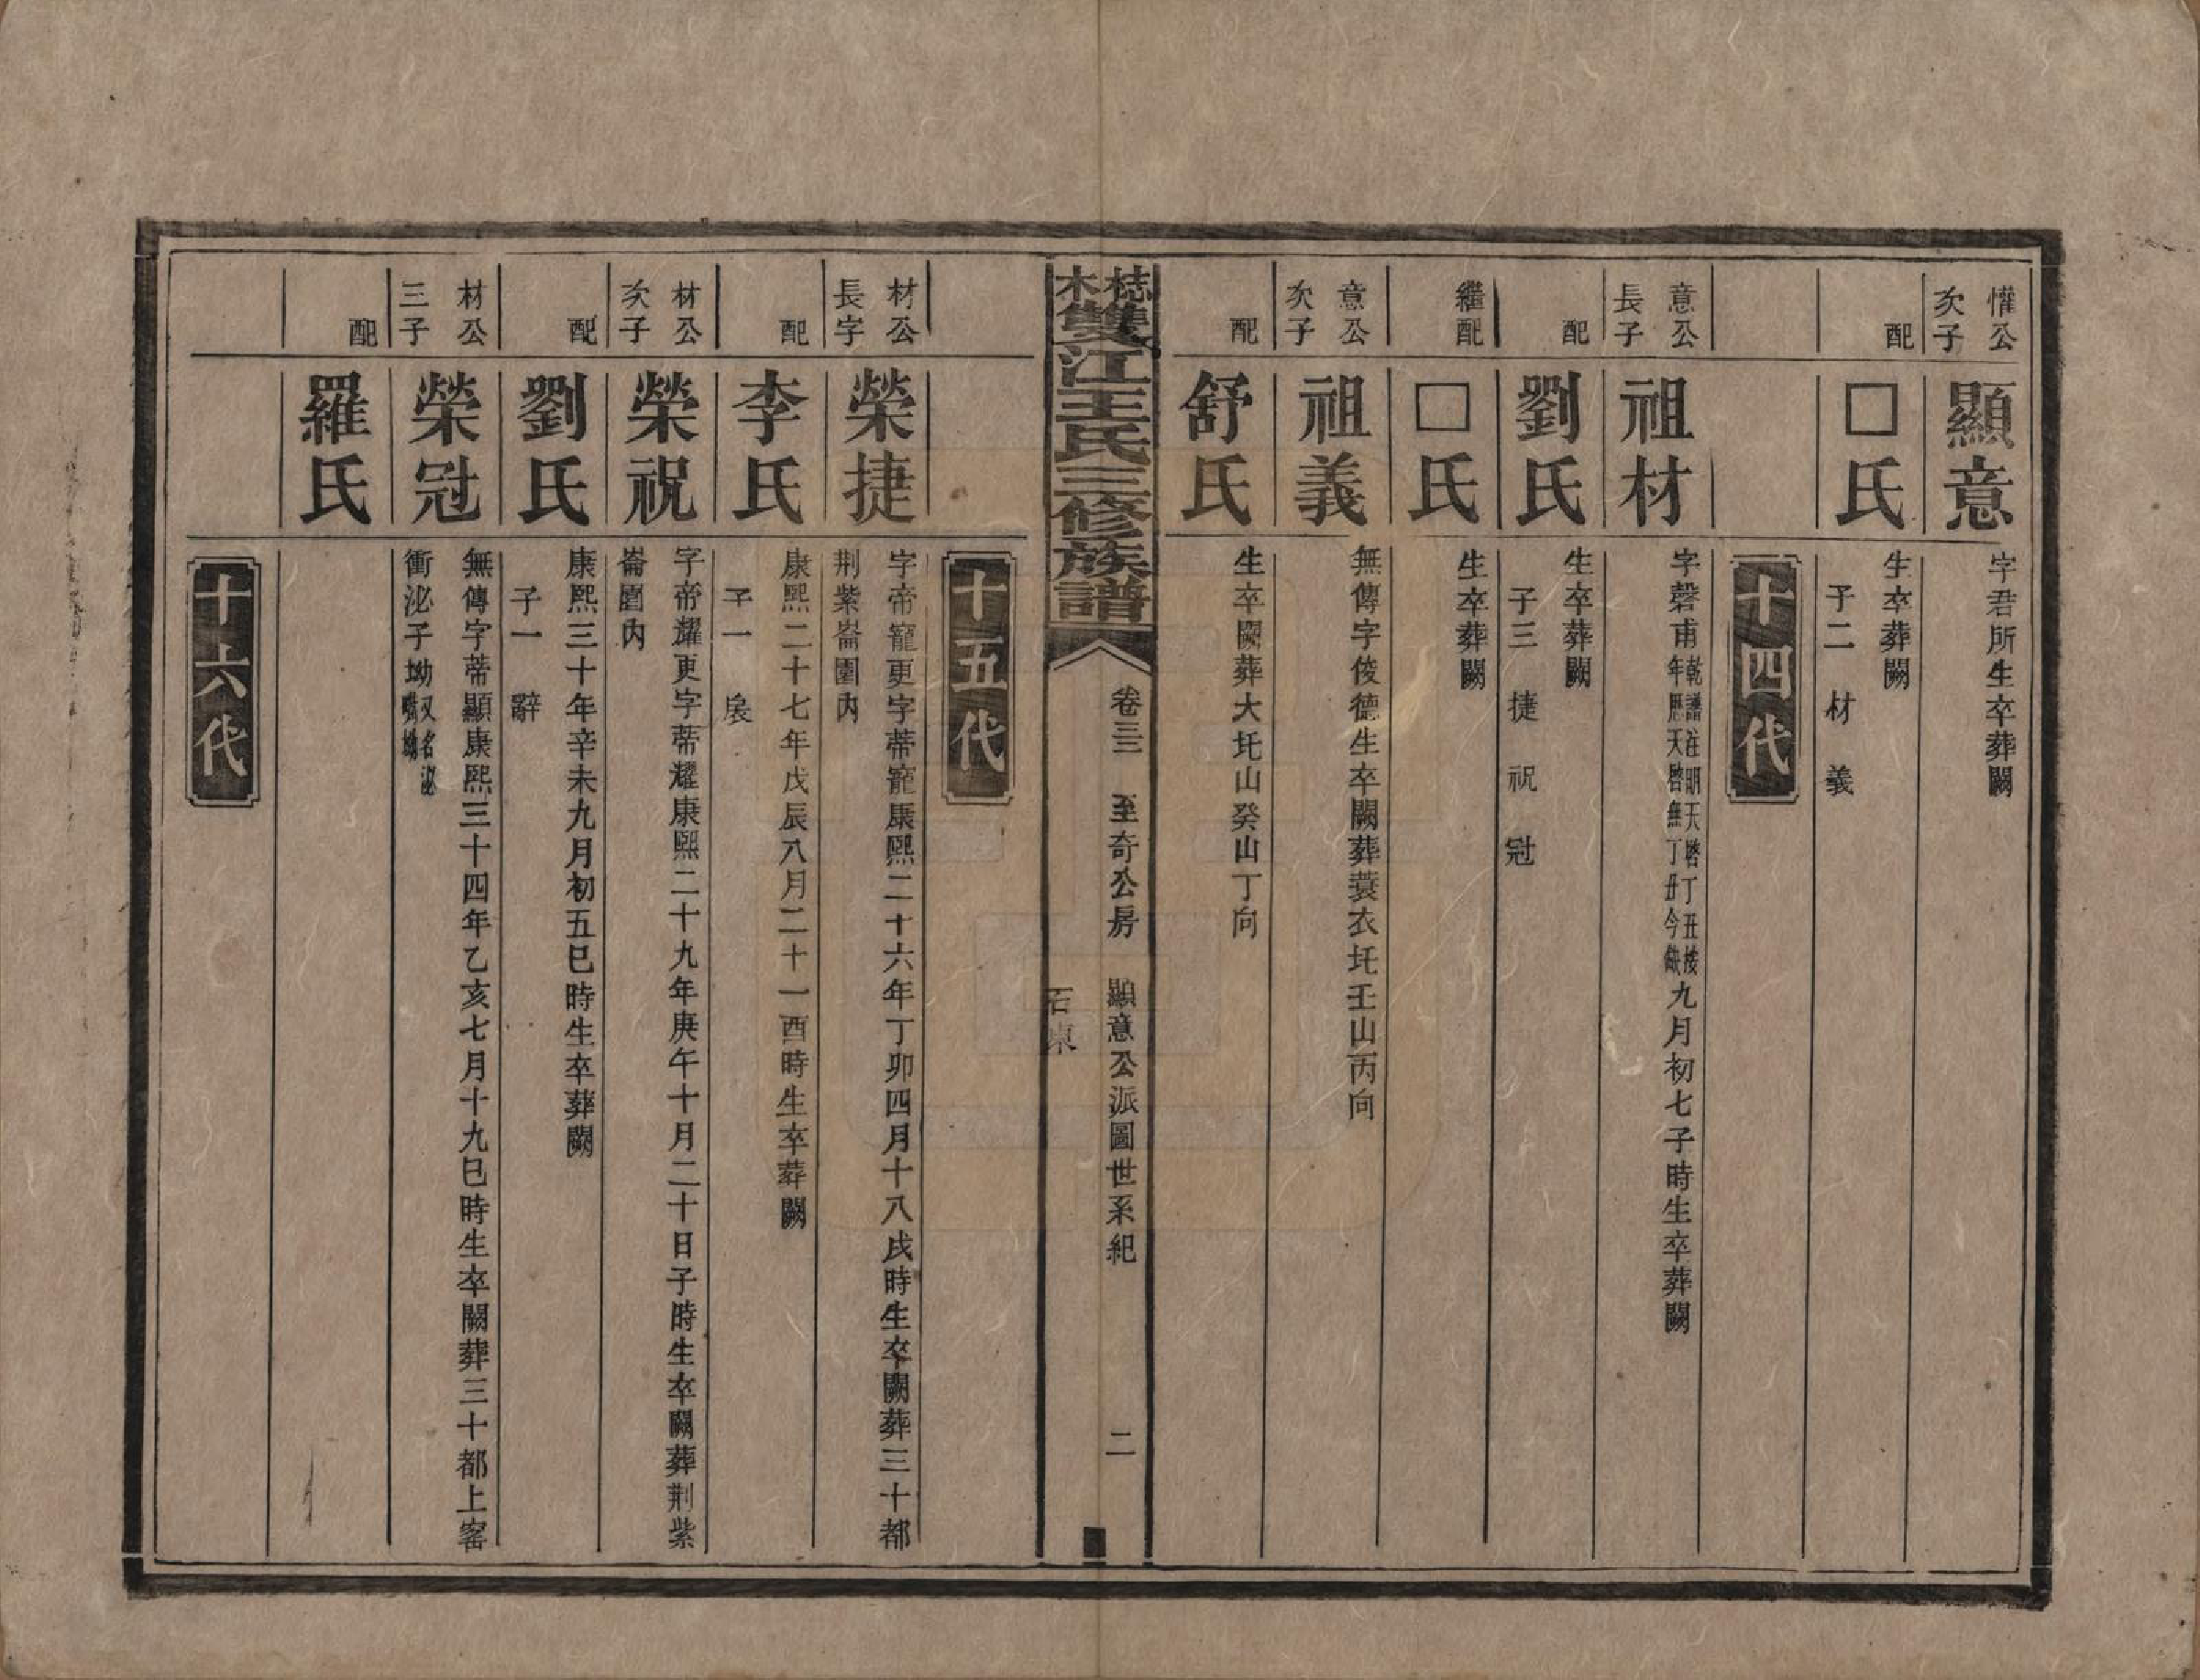 懽公次子
顯意
字君所生卒葬闕
配
□氏
生卒葬闕
子二 材 義
十四代
意公長子
祖材
字磬甫乾譜注明天啓丁丑按年曆天啓無丁丑今缺九月初七子時生卒葬闕
配
劉氏
生卒葬闕
子三 捷 祝 冠
繼配
□氏
生卒葬闕
意公次子
祖義
無傳字俊德生卒闕葬蓑衣圫壬山丙向
配
舒氏
生卒闕葬大圫山癸山丁向
梽木雙江王氏三修族譜
卷三三 至奇公房 顯意公派圖世系紀 二
石東
十五代
材公長字
榮捷
字帝寵更字蒂寵康熙二十六年丁卯四月十八戌時生卒闕葬三十都
荆紫崙圍內
配
李氏
康熙二十七年戊辰八月二十一酉時生卒葬闕
子一
材公次子
榮祝
字帝耀更字蒂耀康熙二十九年庚午十月二十日子時生卒闕葬荆紫
崙圍內
配
劉氏
康熙三十年辛未九月初五巳時生卒葬闕
子一 辭
材公三子
榮冠
無傳字蒂顯康熙三十四年乙亥七月十九巳時生卒闕葬三十都上窰
衝泌子坳又名泌
配
羅氏
十六代